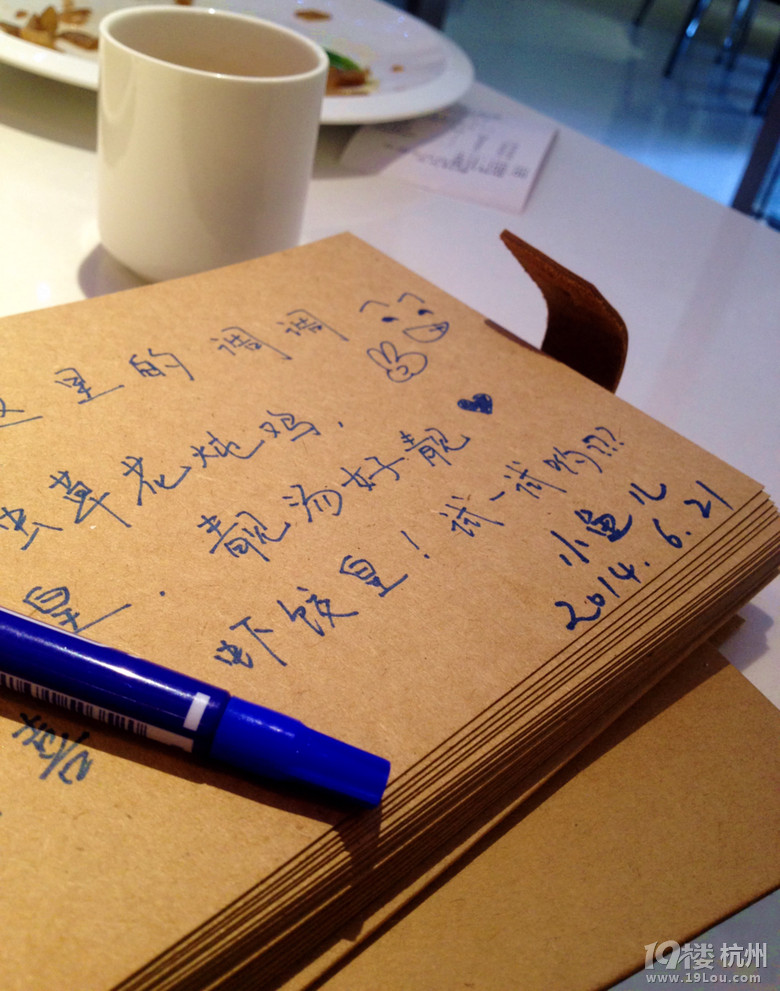 这里的调调
虫草花炖鸡.
靓汤好靓
皇.
虾饺皇!试一试哟???
小鱼儿
2014.6.21
19楼 杭州
www.19Lou.com